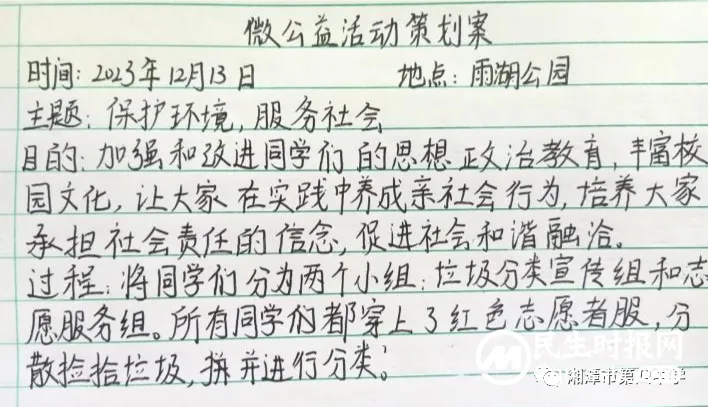 微公益活动策划案
时间：2023年12月13日 地点：雨湖公园
主题：保护环境，服务社会
目的：加强和改进同学们的思想政治教育，丰富校
园文化，让大家在实践中养成亲社会行为，培养大家
承担社会责任的信念，促进社会和谐融洽。
过程：将同学们分为两个小组：垃圾分类宣传组和志
愿服务组。所有同学们都穿上了红色志愿者服，分
散捡拾垃圾，并进行分类。
民生时报网
湘潭市第